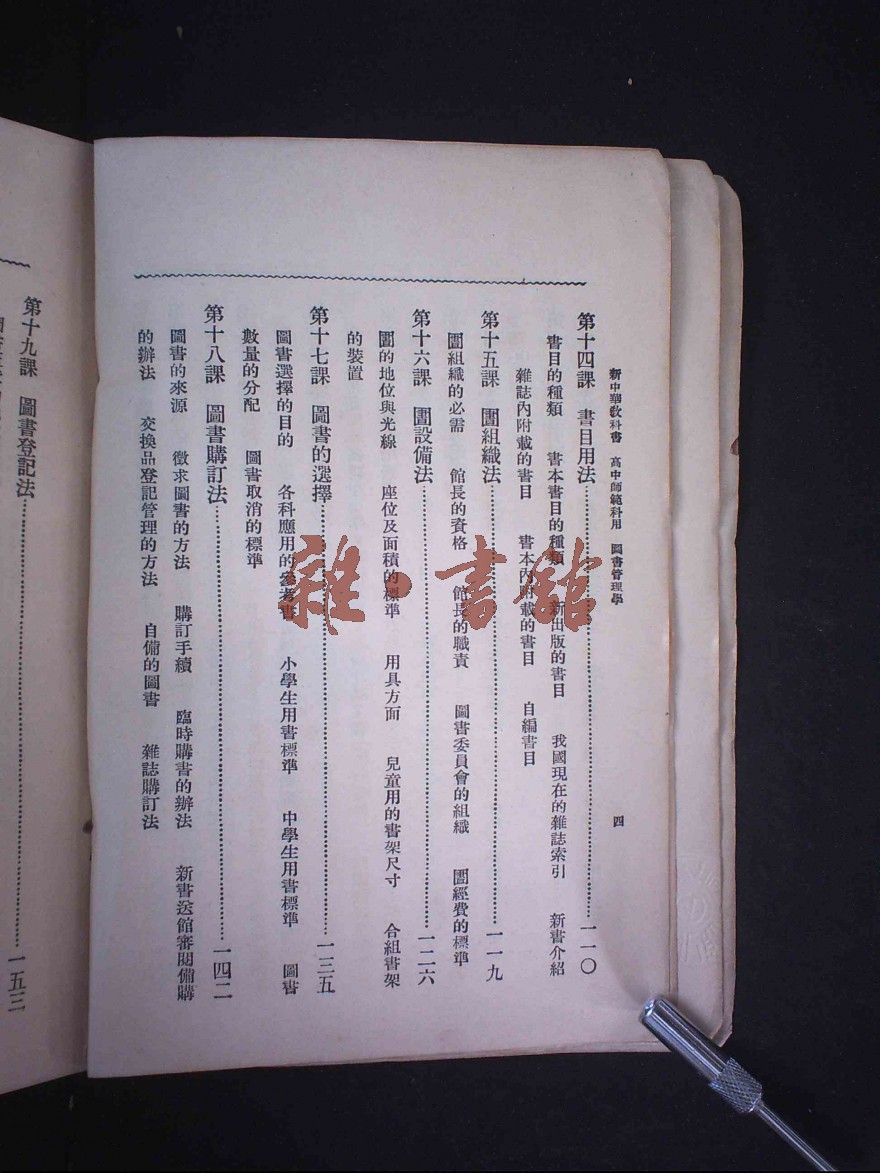 新中華敎科書　高中師範科用　圖書管理學　四
第十四課　書目用法……一一〇
書目的種類　書本書目的種類　新出版的書目　我國現在的雜誌索引　新書介紹
雜誌內附載的書目　書本內附載的書目　自編書目
第十五課　圕組織法……一一九
圕組織的必需　館長的資格　館長的職責　圖書委員會的組織　圕經費的標準
第十六課　圕設備法……一二六
圕的地位與光線　座位及面積的標準　用具方面　兒童用的書架尺寸　合組書架
的裝置
第十七課　圖書的選擇……一三五
圖書選擇的目的　各科應用的參考書　小學生用書標準　中學生用書標準　圖書
數量的分配　圖書取消的標準
第十八課　圖書購訂法……一四二
圖書的來源　徵求圖書的方法　購訂手續　臨時購書的辦法　新書送館審閱備購
的辦法　交換品登記管理的方法　自備的圖書　雜誌購訂法
第十九課　圖書登記法……一五三
雜·書館